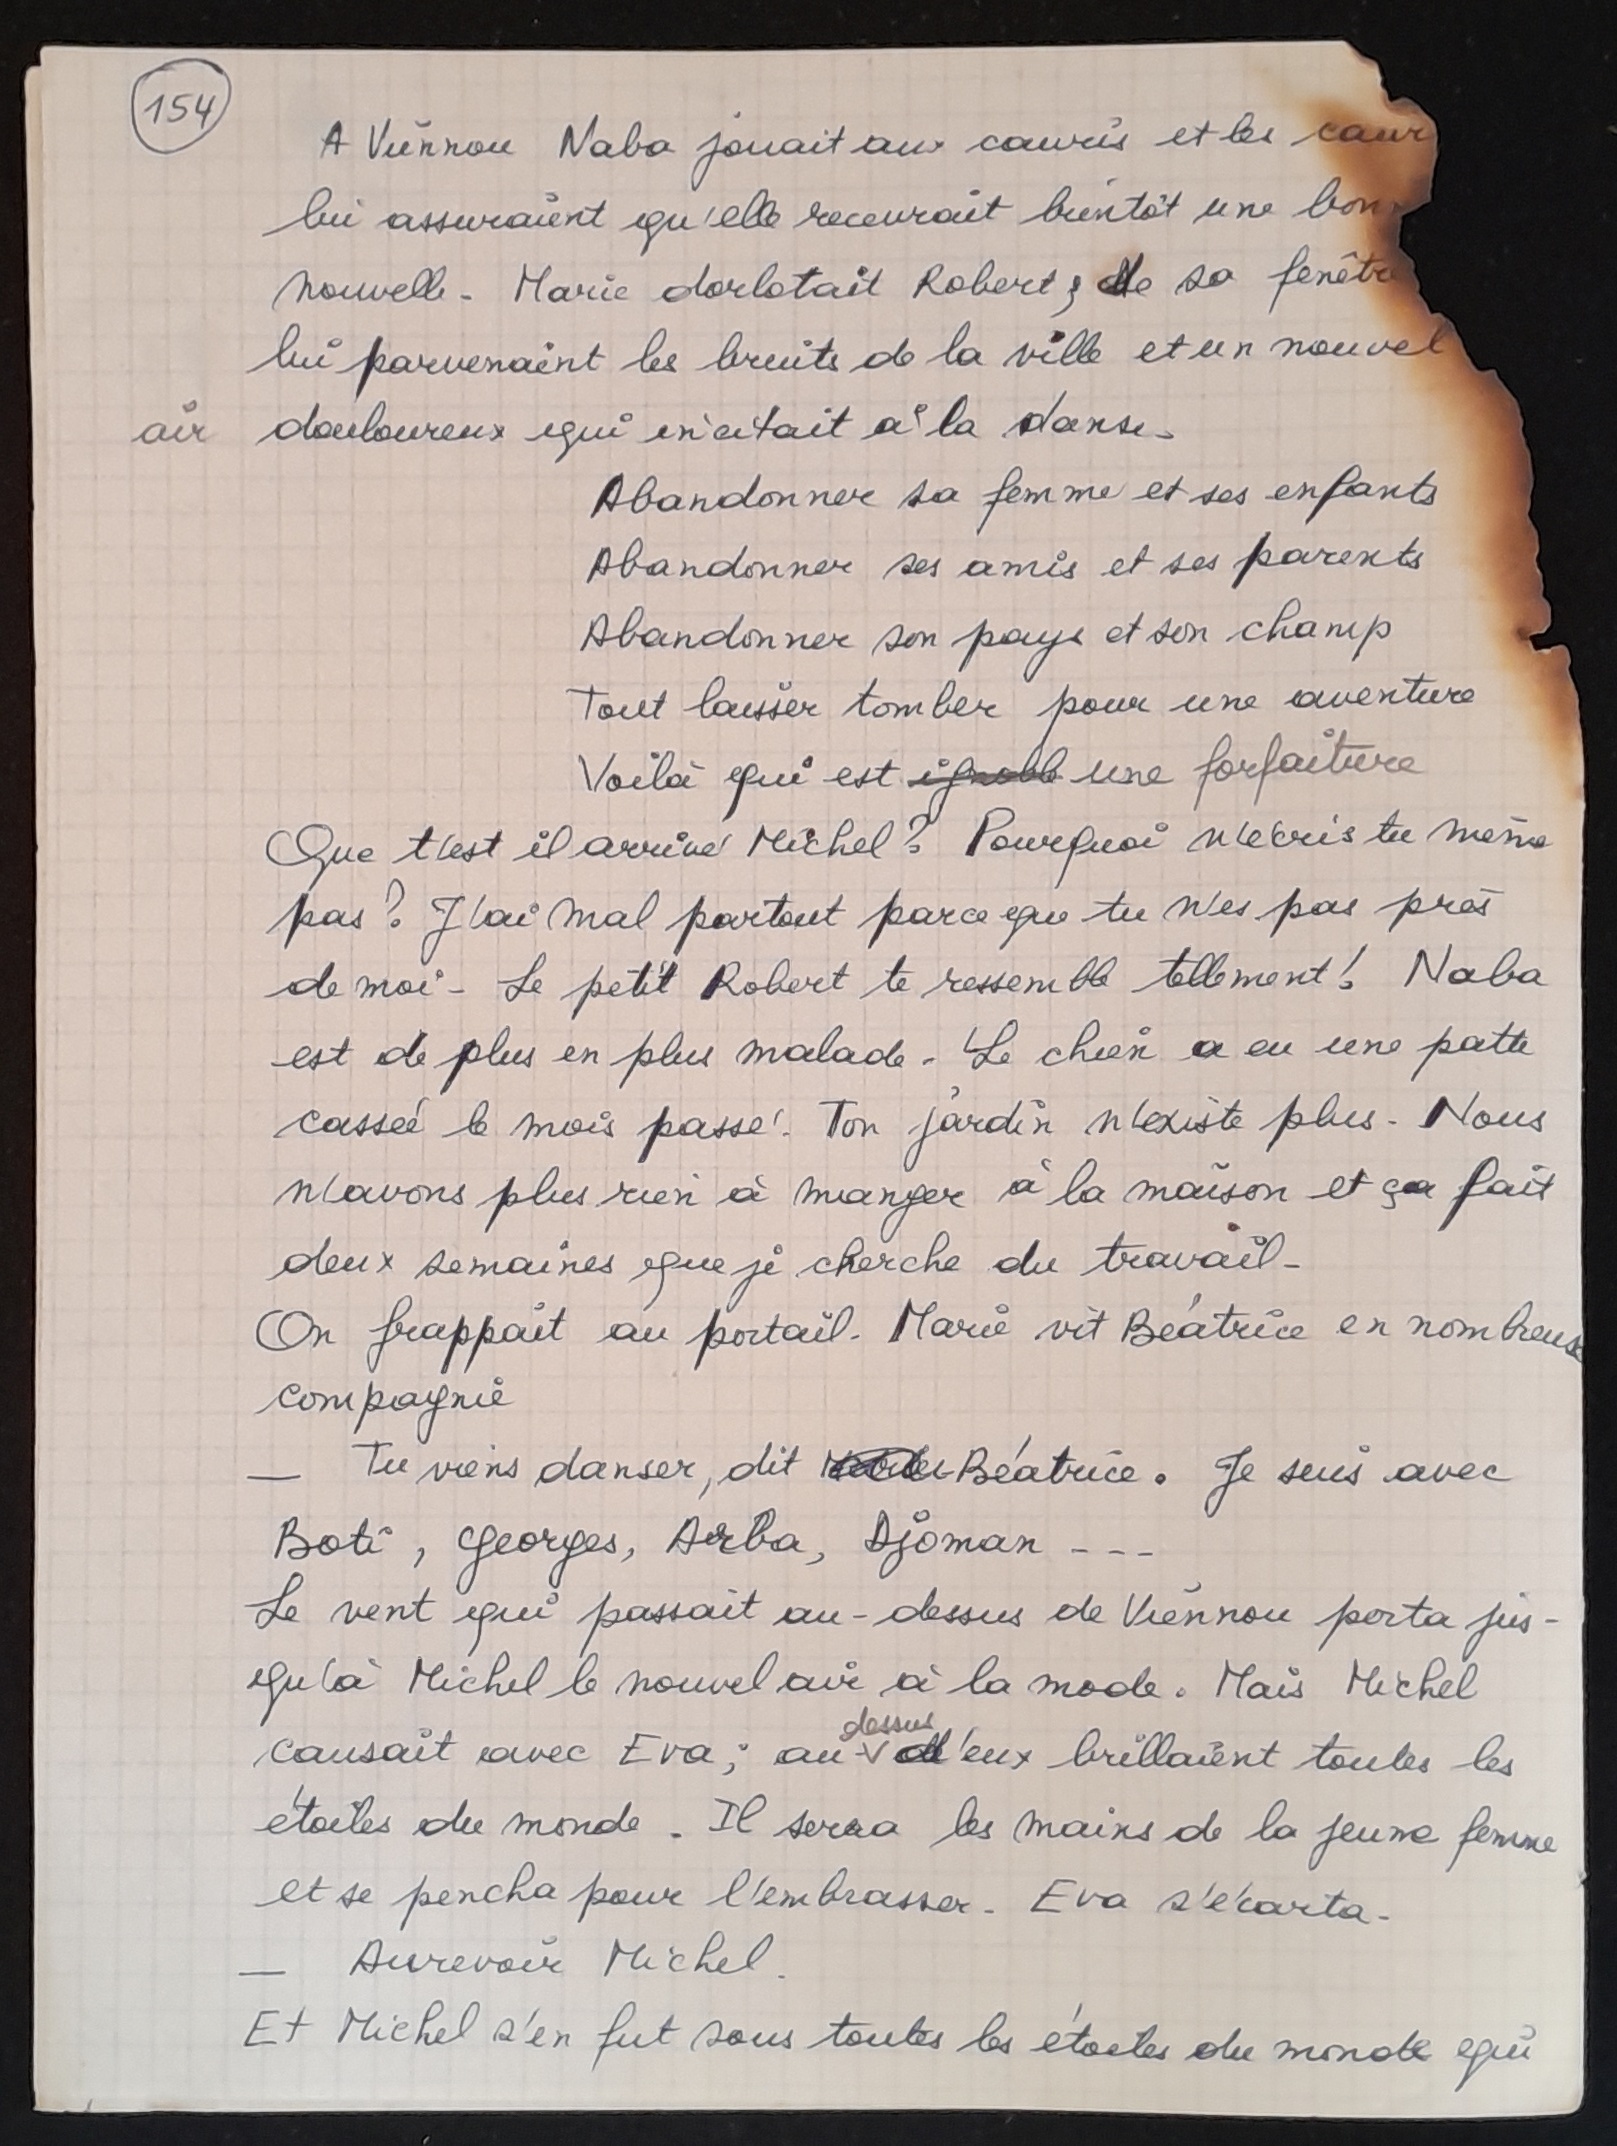 154
A Viênnou Naba jouait aux cauris et les caur
lui assuraient qu'elle recevrait bientôt une bon
nouvelle. Marie dorlotait Robert ; de sa fenêtr
lui parvenaient les bruits de la ville et un nouvel
air douloureux qui incitait à la danse.
Abandonner sa femme et ses enfants
Abandonner ses amis et ses parents
Abandonner son pays et son champ
Tout laisser tomber pour une aventure
Voilà qui est ignoble une forfaiture
Que t'est il arrivé Michel ? Pourquoi n'écris tu même
pas ? J'ai mal partout parce que tu n'es pas près
de moi. Le petit Robert te ressemble tellement ! Naba
est de plus en plus malade. Le chien a eu une patte
cassée le mois passé. Ton jardin n'existe plus. Nous
n'avons plus rien à manger à la maison et ça fait
deux semaines que je cherche du travail.
On frappait au portail. Marie vit Béatrice en nombreuse
compagnie
— Tu viens danser, dit Béatrice. Je suis avec
Boti, Georges, Arba, Djoman ---
Le vent qui passait au-dessus de Viênnou porta jus-
qu'à Michel le nouvel air à la mode. Mais Michel
causait avec Eva ; au-dessus d'eux brillaient toutes les
étoiles du monde. Il serra les mains de la jeune femme
et se pencha pour l'embrasser. Eva s'écarta.
— Aurevoir Michel.
Et Michel s'en fut sous toutes les étoiles du monde qui